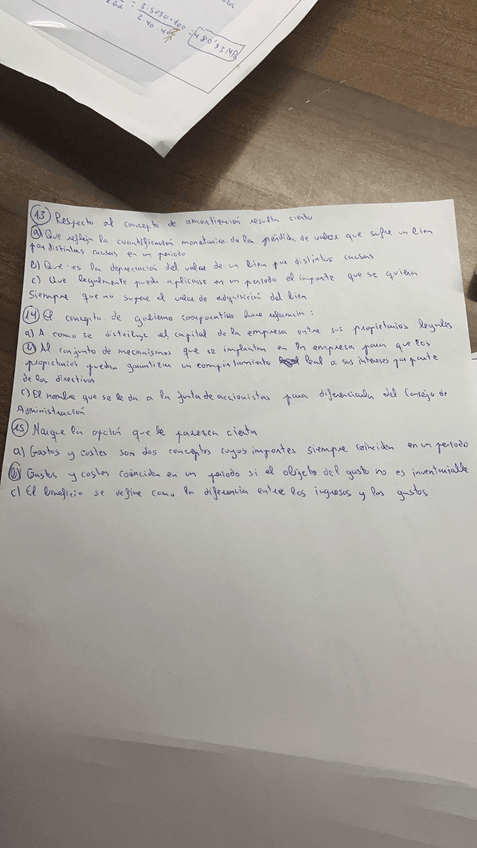 = 3.5130.100
2.40.400
480'93 MP
13 Respecto al concepto de amortización resulta cierto
a) Que refleja la cuantificación monetaria de la pérdida de valor que sufre un bien
por distintas causas en un periodo
b) Que es la depreciación del valor de un bien por distintas causas
c) Que legalmente puede aplicarse en un periodo el importe que se quiera
siempre que no supere el valor de adquisición del bien
14 El concepto de gobierno corporativo hace referencia:
a) A como se distribuye el capital de la empresa entre sus propietarios legales
b) Al conjunto de mecanismos que se implantan en la empresa para que los
propietarios puedan garantizar un comportamiento leal a sus intereses por parte
de los directivos
c) El nombre que se le da a la junta de accionistas para diferenciarla del Consejo de
Administración
15 Marque la opción que le parezca cierta
a) Gastos y costes son dos conceptos cuyos importes siempre coinciden en un periodo
b) Gastos y costes coinciden en un periodo si el objeto del gasto no es inventariable
c) El beneficio se define como la diferencia entre los ingresos y los gastos